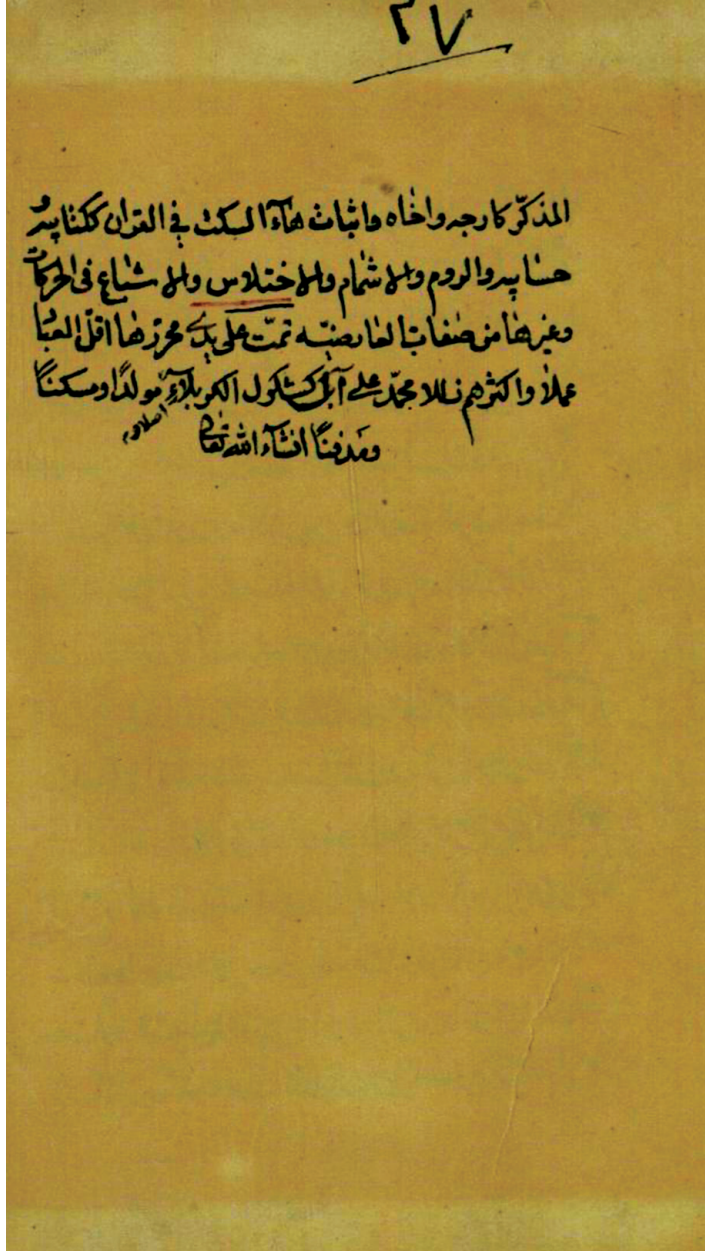 ٣٧
المذكّر كارجه واخاه واثبات هاء السكت في القرآن ككتابيه و
حسابيه والروم والاشمام والاختلاس والاشباع فى الحركات
وغيرها من صفات العارضيّه تمت على يدي محررها اقلّ العباد
عملاً واكثرهم زللا محمّد علي آل كشكول الكربلاءيّ مولداً ومسكناً
ومدفناً انشاء الله تعالى